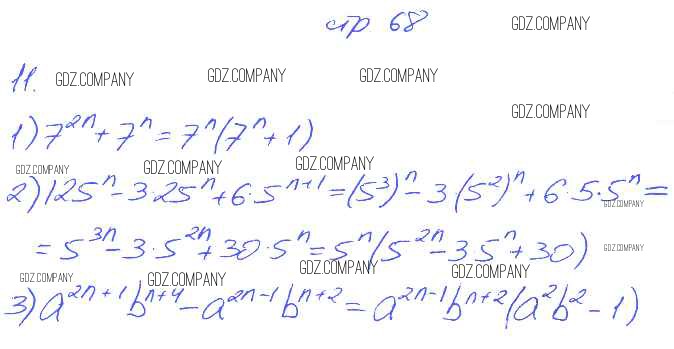 стр 68 GDZ.COMPANY
11. GDZ.COMPANY GDZ.COMPANY GDZ.COMPANY
GDZ.COMPANY
1) 7^{2n} + 7^n = 7^n(7^n + 1)
GDZ.COMPANY GDZ.COMPANY GDZ.COMPANY
2) 125^n - 3·25^n + 6·5^{n+1} = (5^3)^n - 3(5^2)^n + 6·5·5^n =
GDZ.COMPANY
= 5^{3n} - 3·5^{2n} + 30·5^n = 5^n(5^{2n} - 3 5^n + 30) GDZ.COMPANY
GDZ.COMPANY GDZ.COMPANY GDZ.COMPANY GDZ.COMPANY
3) a^{2n+1} b^{n+4} - a^{2n-1} b^{n+2} = a^{2n-1} b^{n+2} (a^2 b^2 - 1)